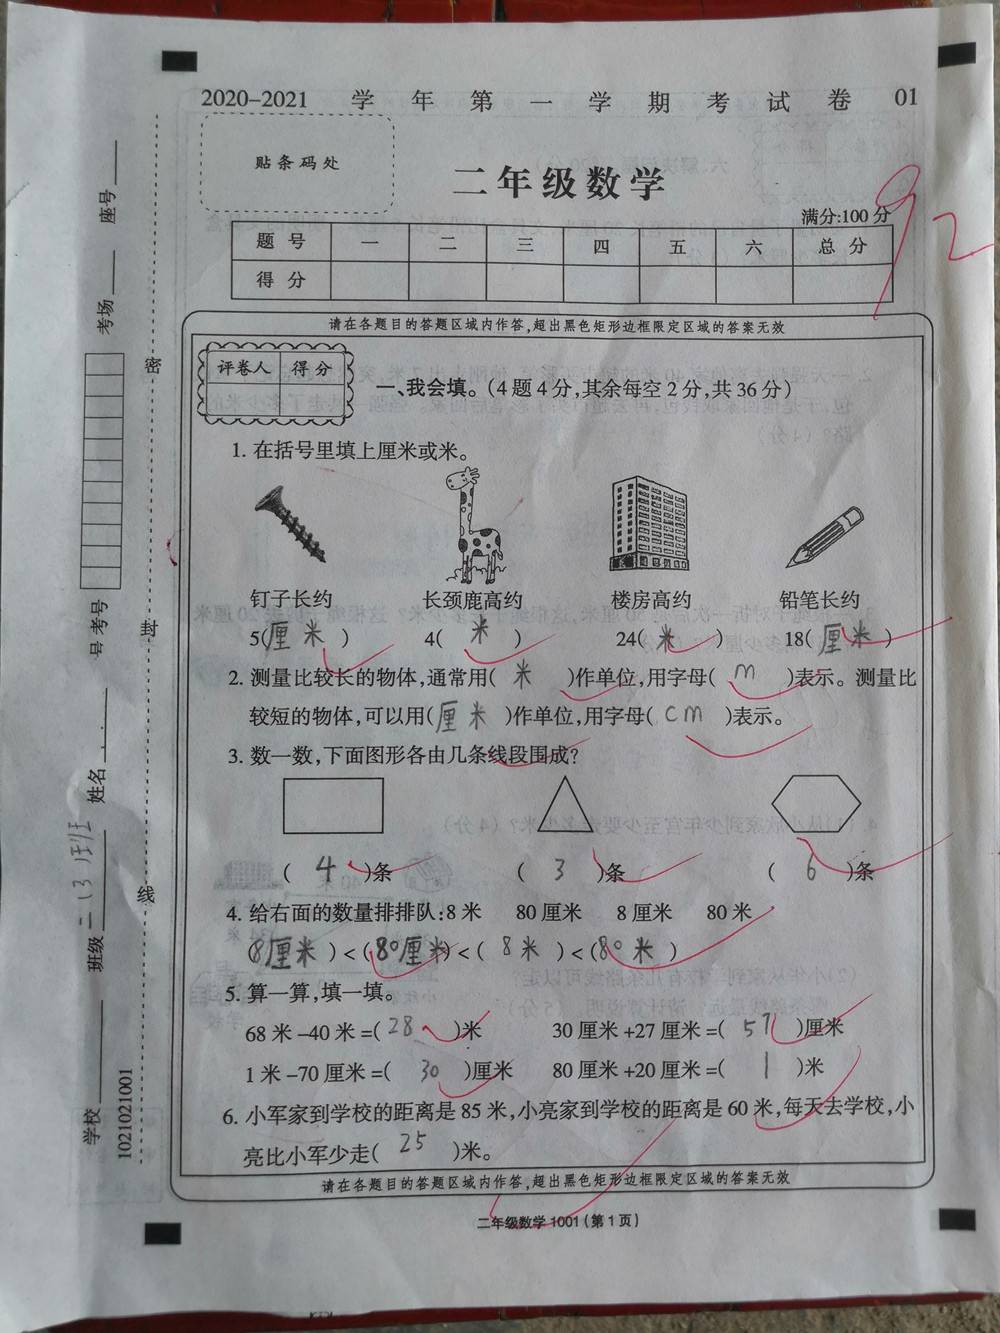 2020-2021 学年第一学期考试卷 01
贴条码处
二年级数学
满分:100分
92
题号 一 二 三 四 五 六 总分
得分
请在各题目的答题区域内作答,超出黑色矩形边框限定区域的答案无效
评卷人 得分
一、我会填。(4题4分,其余每空2分,共36分)
1. 在括号里填上厘米或米。
钉子长约 长颈鹿高约 楼房高约 铅笔长约
5(厘米) 4(米) 24(米) 18(厘米)
2. 测量比较长的物体,通常用(米)作单位,用字母(m)表示。测量比
较短的物体,可以用(厘米)作单位,用字母(cm)表示。
3. 数一数,下面图形各由几条线段围成?
(4)条 (3)条 (6)条
4. 给右面的数量排排队:8米 80厘米 8厘米 80米
(8厘米)<(80厘米)<(8米)<(80米)
5. 算一算,填一填。
68米-40米=(28)米 30厘米+27厘米=(57)厘米
1米-70厘米=(30)厘米 80厘米+20厘米=(1)米
6. 小军家到学校的距离是85米,小亮家到学校的距离是60米,每天去学校,小
亮比小军少走(25)米。
请在各题目的答题区域内作答,超出黑色矩形边框限定区域的答案无效
二年级数学1001(第1页)
学校 班级 姓名 号考号 考场 座号
1021021001
密 封 线